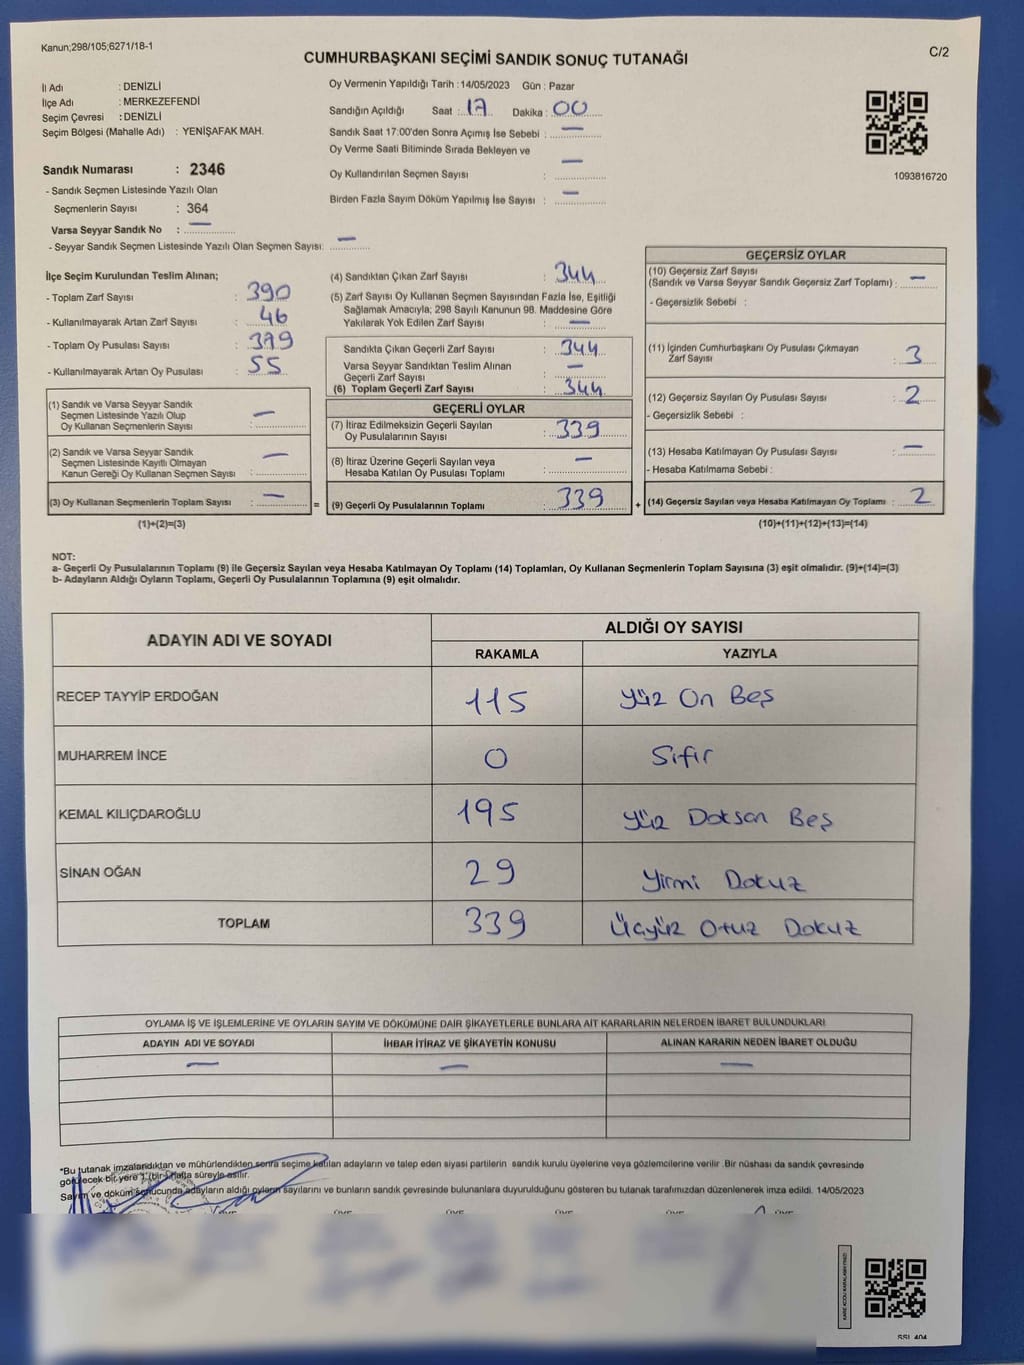 Kanun;298/105;6271/18-1
C/2
CUMHURBAŞKANI SEÇİMİ SANDIK SONUÇ TUTANAĞI
İl Adı : DENİZLİ
İlçe Adı : MERKEZEFENDİ
Seçim Çevresi : DENİZLİ
Seçim Bölgesi (Mahalle Adı) : YENİŞAFAK MAH.
Oy Vermenin Yapıldığı Tarih : 14/05/2023 Gün : Pazar
Sandığın Açıldığı Saat : 17 Dakika : 00
Sandık Saat 17:00'den Sonra Açımış İse Sebebi : —
Oy Verme Saati Bitiminde Sırada Bekleyen ve
Oy Kullandırılan Seçmen Sayısı : —
Birden Fazla Sayım Döküm Yapılmış İse Sayısı : —
1093816720
Sandık Numarası : 2346
- Sandık Seçmen Listesinde Yazılı Olan
Seçmenlerin Sayısı : 364
Varsa Seyyar Sandık No : —
- Seyyar Sandık Seçmen Listesinde Yazılı Olan Seçmen Sayısı: —
İlçe Seçim Kurulundan Teslim Alınan;
- Toplam Zarf Sayısı : 390
- Kullanılmayarak Artan Zarf Sayısı : 46
- Toplam Oy Pusulası Sayısı : 399
- Kullanılmayarak Artan Oy Pusulası : 55
(1) Sandık ve Varsa Seyyar Sandık
Seçmen Listesinde Yazılı Olup
Oy Kullanan Seçmenlerin Sayısı : —
(2) Sandık ve Varsa Seyyar Sandık
Seçmen Listesinde Kayıtlı Olmayan
Kanun Gereği Oy Kullanan Seçmen Sayısı : —
(3) Oy Kullanan Seçmenlerin Toplam Sayısı : —
(1)+(2)=(3)
=
(4) Sandıktan Çıkan Zarf Sayısı : 344
(5) Zarf Sayısı Oy Kullanan Seçmen Sayısından Fazla İse, Eşitliği
Sağlamak Amacıyla; 298 Sayılı Kanunun 98. Maddesine Göre
Yakılarak Yok Edilen Zarf Sayısı : —
Sandıkta Çıkan Geçerli Zarf Sayısı : 344
Varsa Seyyar Sandıktan Teslim Alınan
Geçerli Zarf Sayısı : —
(6) Toplam Geçerli Zarf Sayısı : 344
GEÇERLİ OYLAR
(7) İtiraz Edilmeksizin Geçerli Sayılan
Oy Pusulalarının Sayısı : 339
(8) İtiraz Üzerine Geçerli Sayılan veya
Hesaba Katılan Oy Pusulası Toplamı : —
(9) Geçerli Oy Pusulalarının Toplamı : 339
+
GEÇERSİZ OYLAR
(10) Geçersiz Zarf Sayısı
(Sandık ve Varsa Seyyar Sandık Geçersiz Zarf Toplamı) : —
- Geçersizlik Sebebi :
(11) İçinden Cumhurbaşkanı Oy Pusulası Çıkmayan
Zarf Sayısı : 3
(12) Geçersiz Sayılan Oy Pusulası Sayısı : 2
- Geçersizlik Sebebi :
(13) Hesaba Katılmayan Oy Pusulası Sayısı : —
- Hesaba Katılmama Sebebi :
(14) Geçersiz Sayılan veya Hesaba Katılmayan Oy Toplamı : 2
(10)+(11)+(12)+(13)=(14)
NOT:
a- Geçerli Oy Pusulalarının Toplamı (9) ile Geçersiz Sayılan veya Hesaba Katılmayan Oy Toplamı (14) Toplamları, Oy Kullanan Seçmenlerin Toplam Sayısına (3) eşit olmalıdır. (9)+(14)=(3)
b- Adayların Aldığı Oyların Toplamı, Geçerli Oy Pusulalarının Toplamına (9) eşit olmalıdır.
ADAYIN ADI VE SOYADI
ALDIĞI OY SAYISI
RAKAMLA YAZIYLA
RECEP TAYYİP ERDOĞAN 115 Yüz On Beş
MUHARREM İNCE 0 Sıfır
KEMAL KILIÇDAROĞLU 195 Yüz Doksan Beş
SİNAN OĞAN 29 Yirmi Dokuz
TOPLAM 339 Üçyüz Otuz Dokuz
OYLAMA İŞ VE İŞLEMLERİNE VE OYLARIN SAYIM VE DÖKÜMÜNE DAİR ŞİKAYETLERLE BUNLARA AİT KARARLARIN NELERDEN İBARET BULUNDUKLARI
ADAYIN ADI VE SOYADI İHBAR İTİRAZ VE ŞİKAYETİN KONUSU ALINAN KARARIN NEDEN İBARET OLDUĞU
— — —
*Bu tutanak imzalandıktan ve mühürlendikten sonra seçime katılan adayların ve talep eden siyasi partilerin sandık kurulu üyelerine veya gözlemcilerine verilir .Bir nüshası da sandık çevresinde
görülecek bir yere 1 (bir) Hafta süreyle asılır.
Sayım ve döküm sonucunda adayların aldığı oyların sayılarını ve bunların sandık çevresinde bulunanlara duyurulduğunu gösteren bu tutanak tarafımızdan düzenlenerek imza edildi. 14/05/2023
ÜYE ÜYE ÜYE ÜYE ÜYE
SSI 404